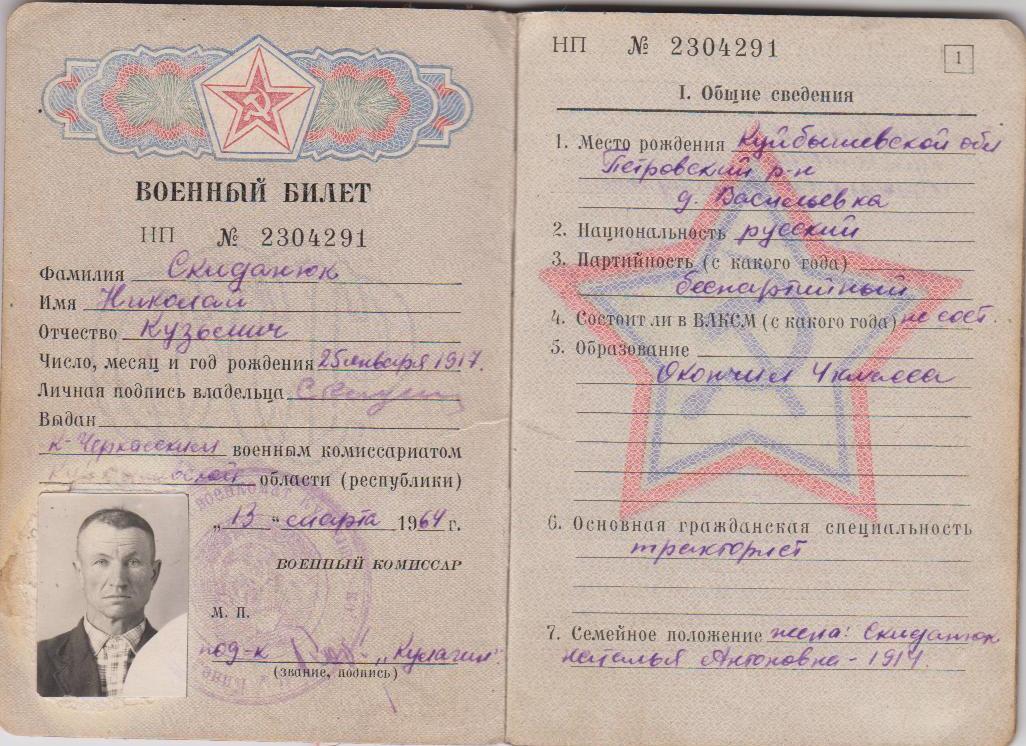 ВОЕННЫЙ БИЛЕТ
НП № 2304291
Фамилия Скиданюк
Имя Николай
Отчество Кузьмич
Число, месяц и год рождения 25 января 1917.
Личная подпись владельца
Выдан
к-Черкасским военным комиссариатом
ской области (республики)
„13“ марта 1964 г.
ВОЕННЫЙ КОМИССАР
М. П.
под-к „Кулагин“
(звание, подпись)
НП № 2304291
1
I. Общие сведения
1. Место рождения Куйбышевской обл
Петровский р-н
д. Васильевка
2. Национальность русский
3. Партийность (с какого года)
беспартийный
4. Состоит ли в ВЛКСМ (с какого года) не сост.
5. Образование
Окончил 4 класса
6. Основная гражданская специальность
тракторист
7. Семейное положение жена: Скиданюк
Наталья Антоновна - 1914.